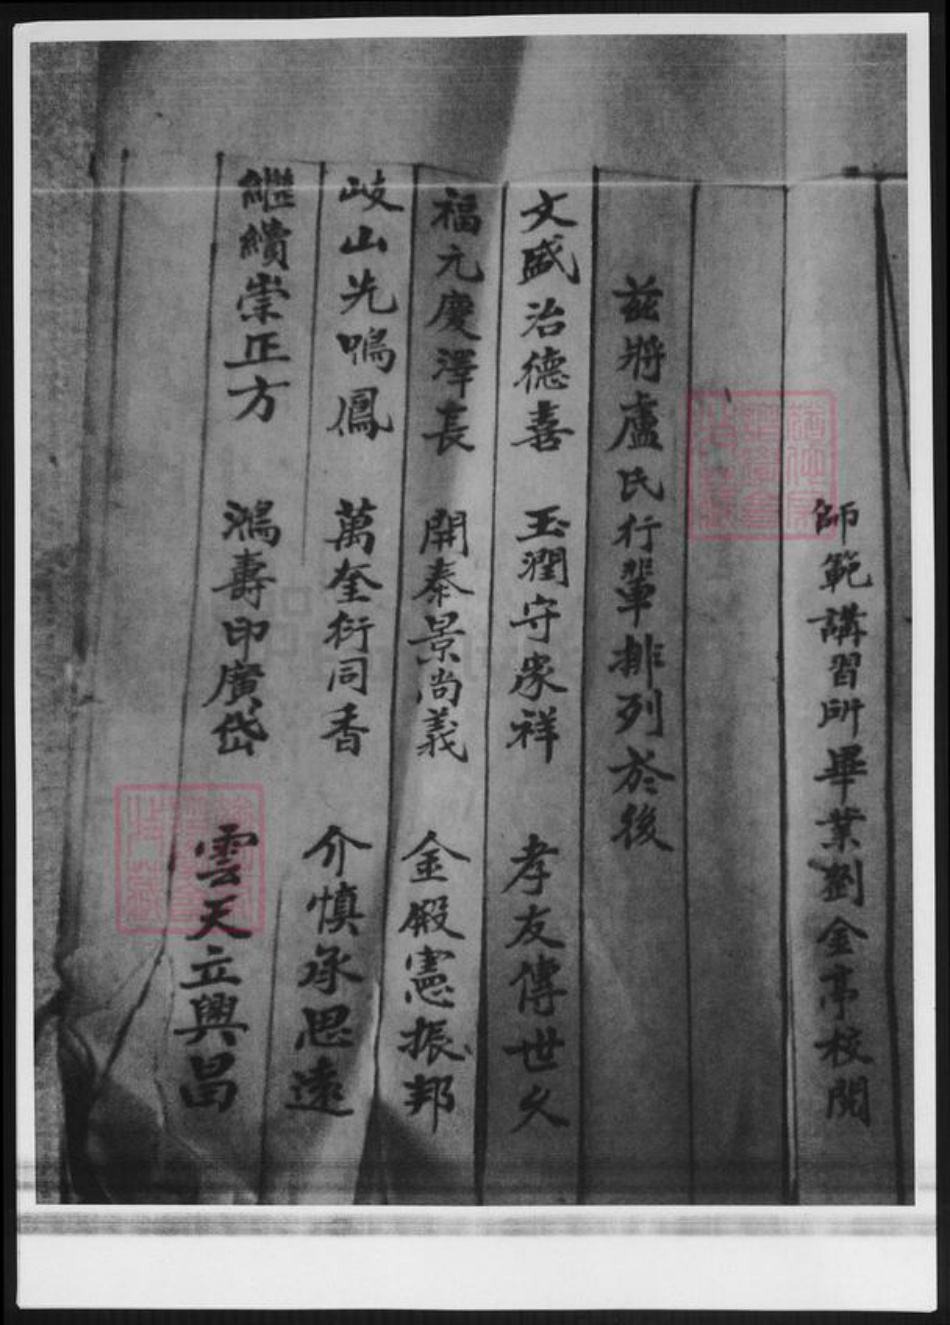 師範講習所畢業劉金亭校閱
茲將盧氏行輩排列於後
文盛治德喜 玉潤守家祥 孝友傳世久
福元慶澤長 開泰景尚義 金殿憲振邦
岐山先鳴鳳 萬奎衍同香 介慎承思遠
繼續崇正方 鴻壽印廣岱 雲天立興昌